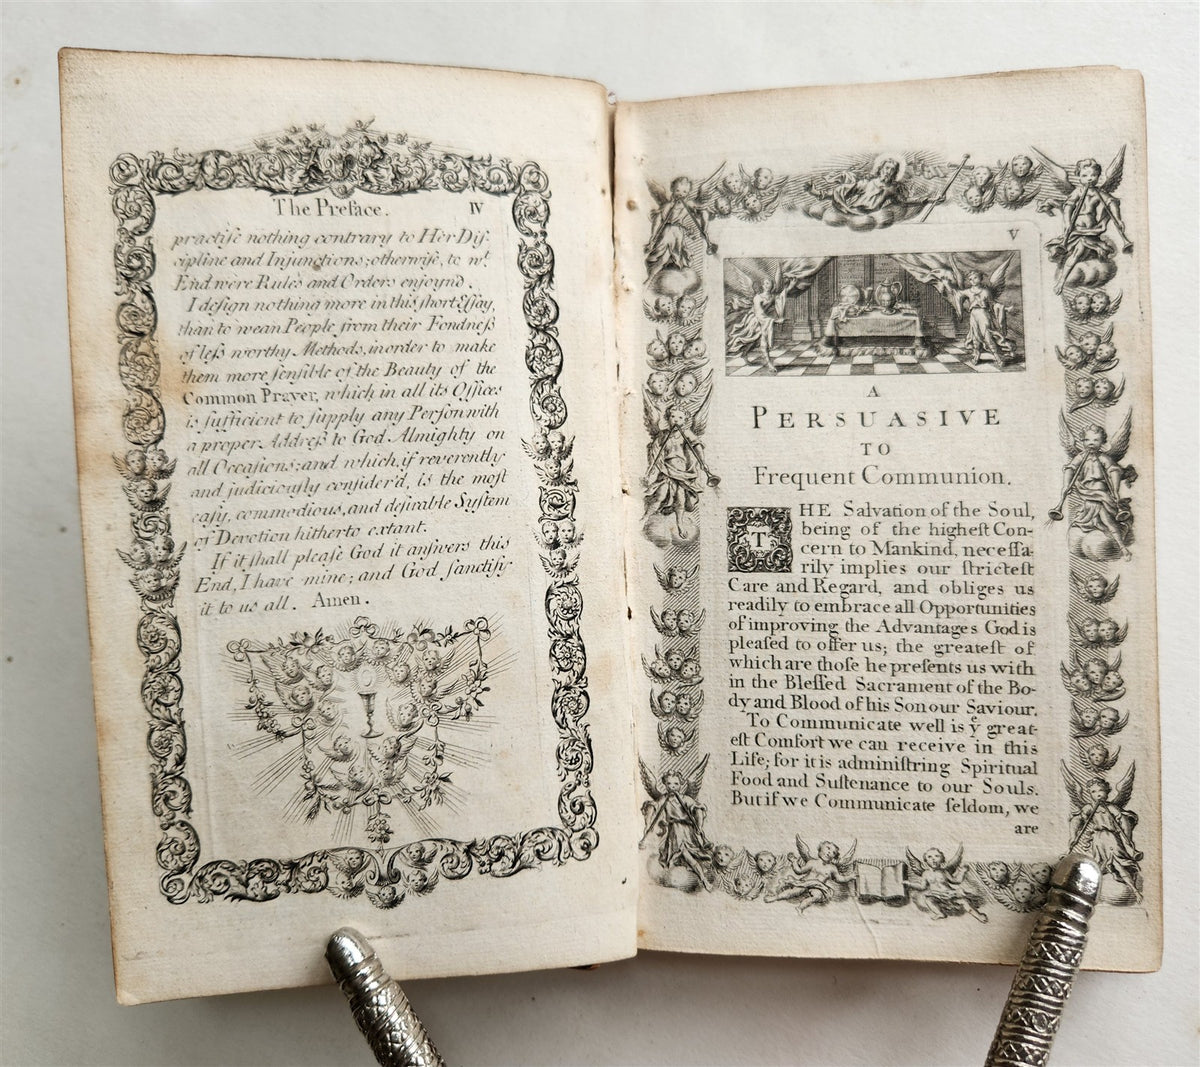 The Preface. IV
practiſe nothing contrary to Her Diſ-
cipline and Injunctions; otherwiſe, to wt.
End were Rules and Orders enjoynd.
I deſign nothing more in this ſhort Eſſay,
than to wean People from their Fondneſs
of leſs worthy Methods, in order to make
them more ſenſible of the Beauty of the
Common Prayer, which in all its Offices
is ſufficient to ſupply any Perſon with
a proper Addreſs to God Almighty on
all Occaſions; and which, if reverently
and judiciouſly conſider'd, is the moſt
eaſy, commodious, and deſirable Syſtem
of Devotion hitherto extant.
If it ſhall pleaſe God it anſwers this
End, I have mine; and God ſanctify
it to us all. Amen.
V
A
PERSUASIVE
TO
Frequent Communion.
THE Salvation of the Soul,
being of the higheſt Con-
cern to Mankind, neceſſa-
rily implies our ſtricteſt
Care and Regard, and obliges us
readily to embrace all Opportunities
of improving the Advantages God is
pleaſed to offer us; the greateſt of
which are thoſe he preſents us with
in the Bleſſed Sacrament of the Bo-
dy and Blood of his Son our Saviour.
To Communicate well is yͤ great-
eſt Comfort we can receive in this
Life; for it is adminiſtring Spiritual
Food and Suſtenance to our Souls.
But if we Communicate ſeldom, we
are